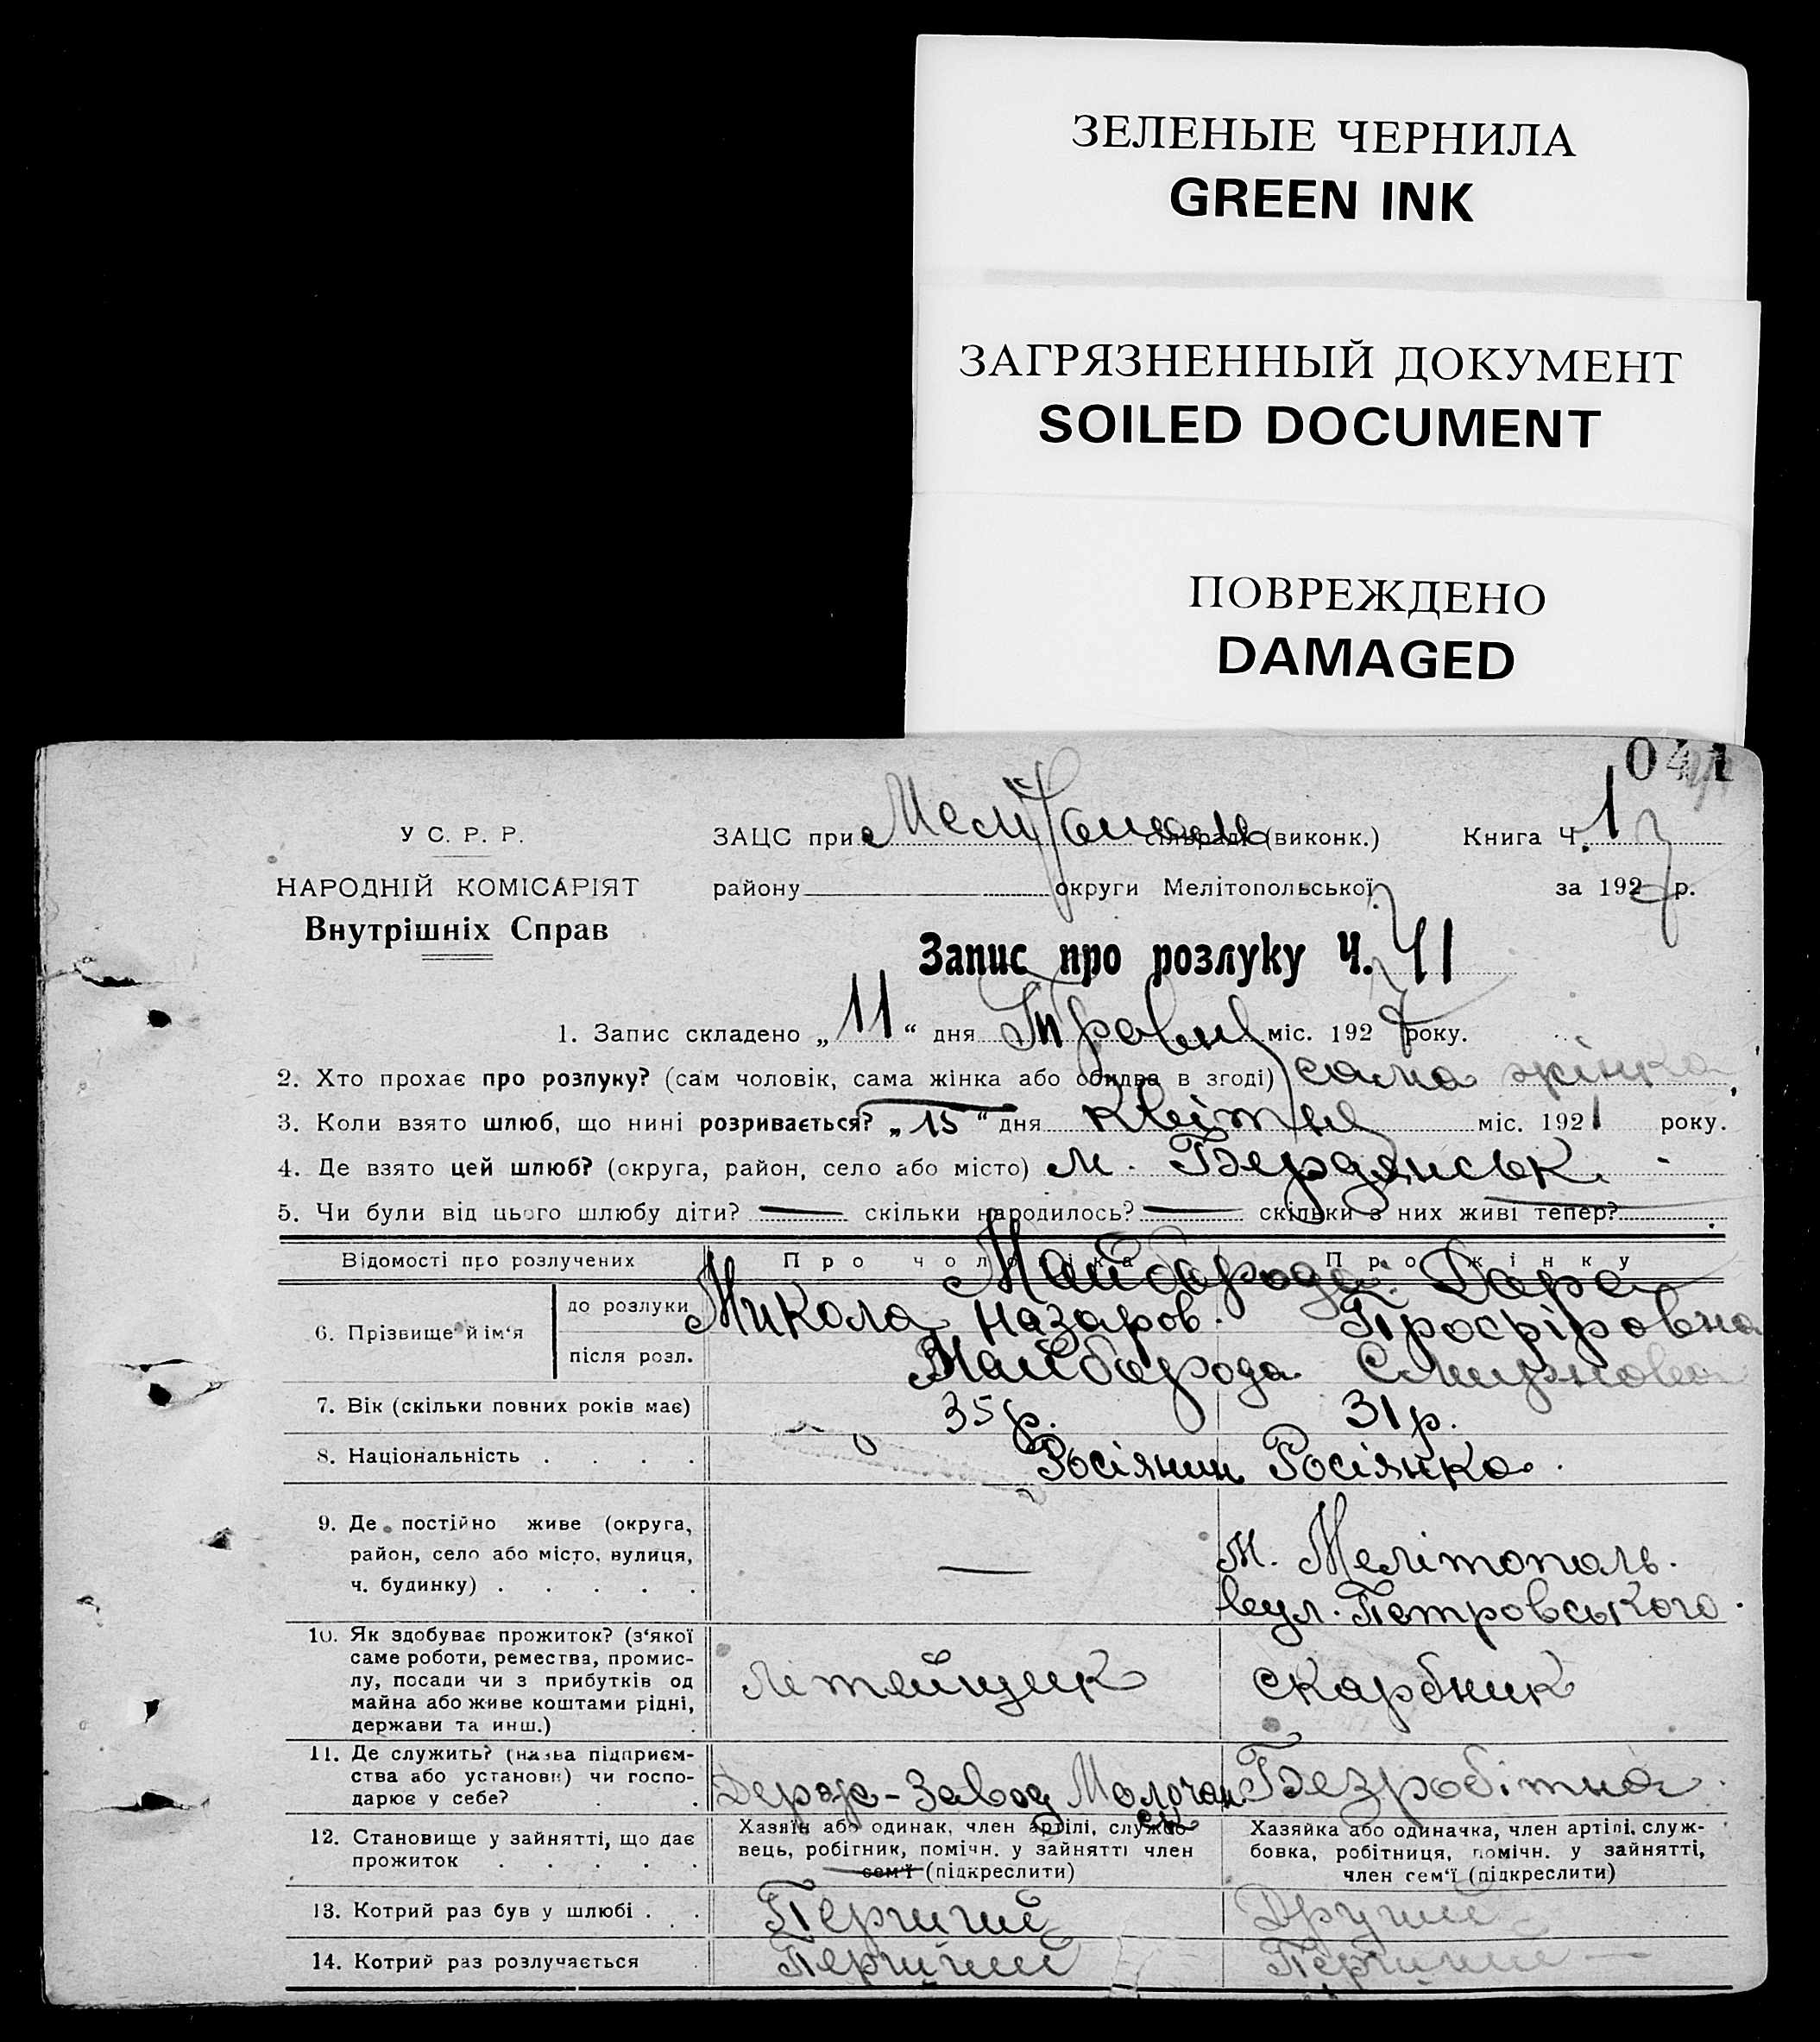 ЗЕЛЕНЫЕ ЧЕРНИЛА
GREEN INK
ЗАГРЯЗНЕННЫЙ ДОКУМЕНТ
SOILED DOCUMENT
ПОВРЕЖДЕНО
DAMAGED
041
У С. Р. Р.
НАРОДНІЙ КОМІСАРІЯТ
Внутрішніх Справ
ЗАЦС при сільраді (виконк.) Книга Ч. 1
району округи Мелітопольської за 1927 р.
Запис про розлуку Ч. 41
1. Запис складено „11“ дня Травня міс. 1927 року.
2. Хто прохає про розлуку? (сам чоловік, сама жінка або обидва в згоді) сама жінка
3. Коли взято шлюб, що нині розривається? „15“ дня Квітня міс. 1921 року.
4. Де взято цей шлюб? (округа, район, село або місто) м. Бердянськ.
5. Чи були від цього шлюбу діти? — скільки народилось? — скільки з них живі тепер? —
Відомості про розлучених Про чоловіка Про жінку
6. Прізвище й ім‘я
до розлуки
Майборода Дара
Микола Назаров. Просфіровна
після розл. Майборода Смирнова
7. Вік (скільки повних років має) 35 р. 31 р.
8. Національність . . . . Росіянин Росіянка.
9. Де постійно живе (округа,
район, село або місто, вулиця,
ч. будинку) . . . . .
—
м. Мелітополь.
вул. Петровського.
10. Як здобуває прожиток? (з‘якої
саме роботи, ремества, промис-
лу, посади чи з прибутків од
майна або живе коштами рідні,
держави та инш.)
Літейщик скарбник
11. Де служить? (назва підприєм-
ства або установи) чи госпо-
дарює у себе?
Держ-Завод Молочанськ Безробітна.
12. Становище у зайнятті, що дає
прожиток . . . . .
Хазяїн або одинак, член артілі, службо-
вець, робітник, помічн. у зайнятті член
сем‘ї (підкреслити)
Хазяйка або одиначка, член артілі, служ-
бовка, робітниця, помічн. у зайнятті,
член сем‘ї (підкреслити)
13. Котрий раз був у шлюбі . . . Перший Другий
14. Котрий раз розлучається . Перший Перший —